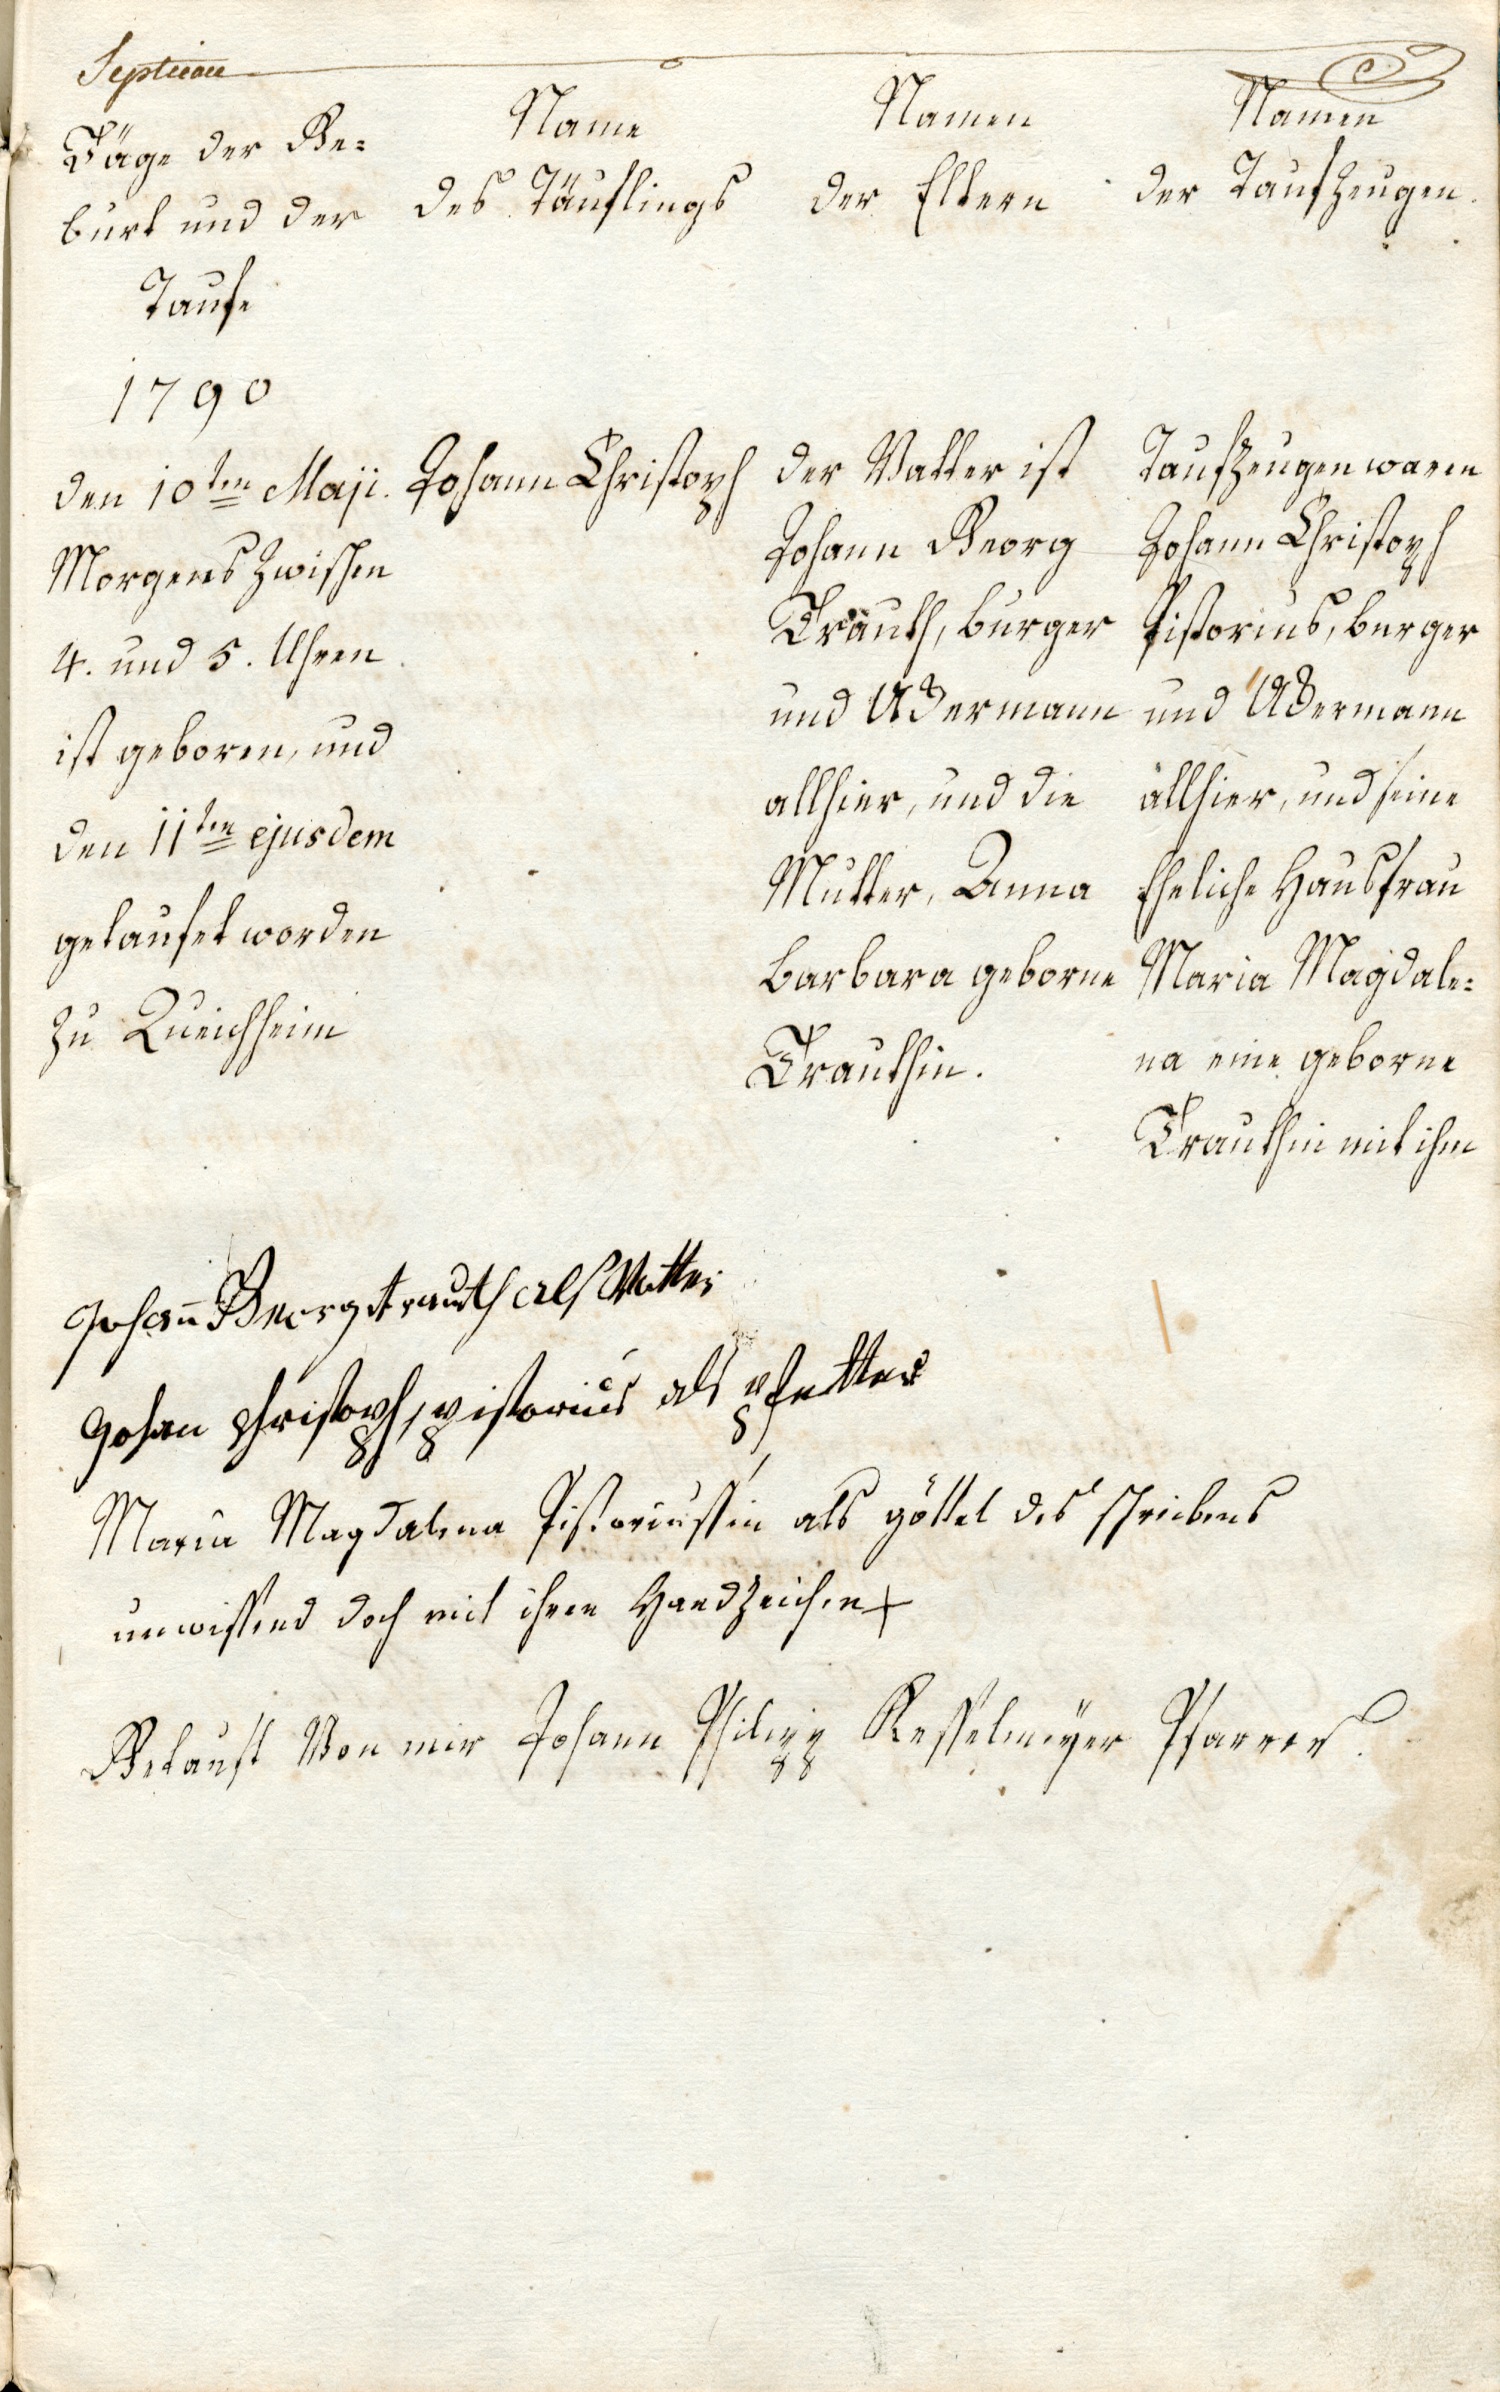 Septieme
Täge der Ge=
burt und der
Taufe
Name
des Täuflings
Namen
der Eltern
Namen
der Taufzeugen.
1790
den 10ten Maji.
Morgens zwischen
4. und 5. Uhren
ist geboren, und
den 11ten ejusdem
getaufet worden
zu Queichheim
Johann Christoph
der Vatter ist
Johann Georg
Trauth, burger
und Ackermann
allhier, und die
Mutter, Anna
barbara geborne
Trauthin.
Taufzeugen waren
Johann Christoph
Pistorius, burger
und Ackermann
allhier, und seine
Eheliche Hausfrau
Maria Magdale=
na eine geborne
Trauthin mit ihm
Johan̄ Georg trauth als Vatter
Johan christoph, pistorius als pfetter
Maria Magdalena Pistoriussin als göttel des schreibens
unwissend doch mit ihrem Handzeichen +
Getauft Von mir Johann Philipp Kesselmeyer Pfarrer.